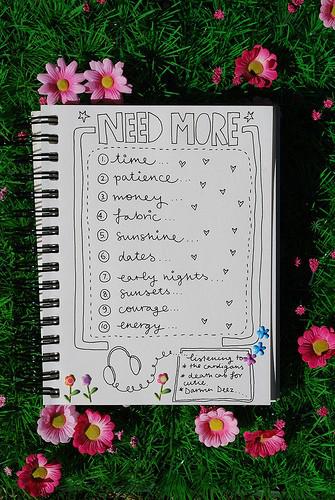 NEED MORE
1 time...
2 patience...
3 money...
4 fabric...
5 sunshine...
6 dates...
7 early nights...
8 sunsets...
9 courage...
10 energy...
listening to
* the cardigans
* death cab for
cutie
* Darwin Deez...